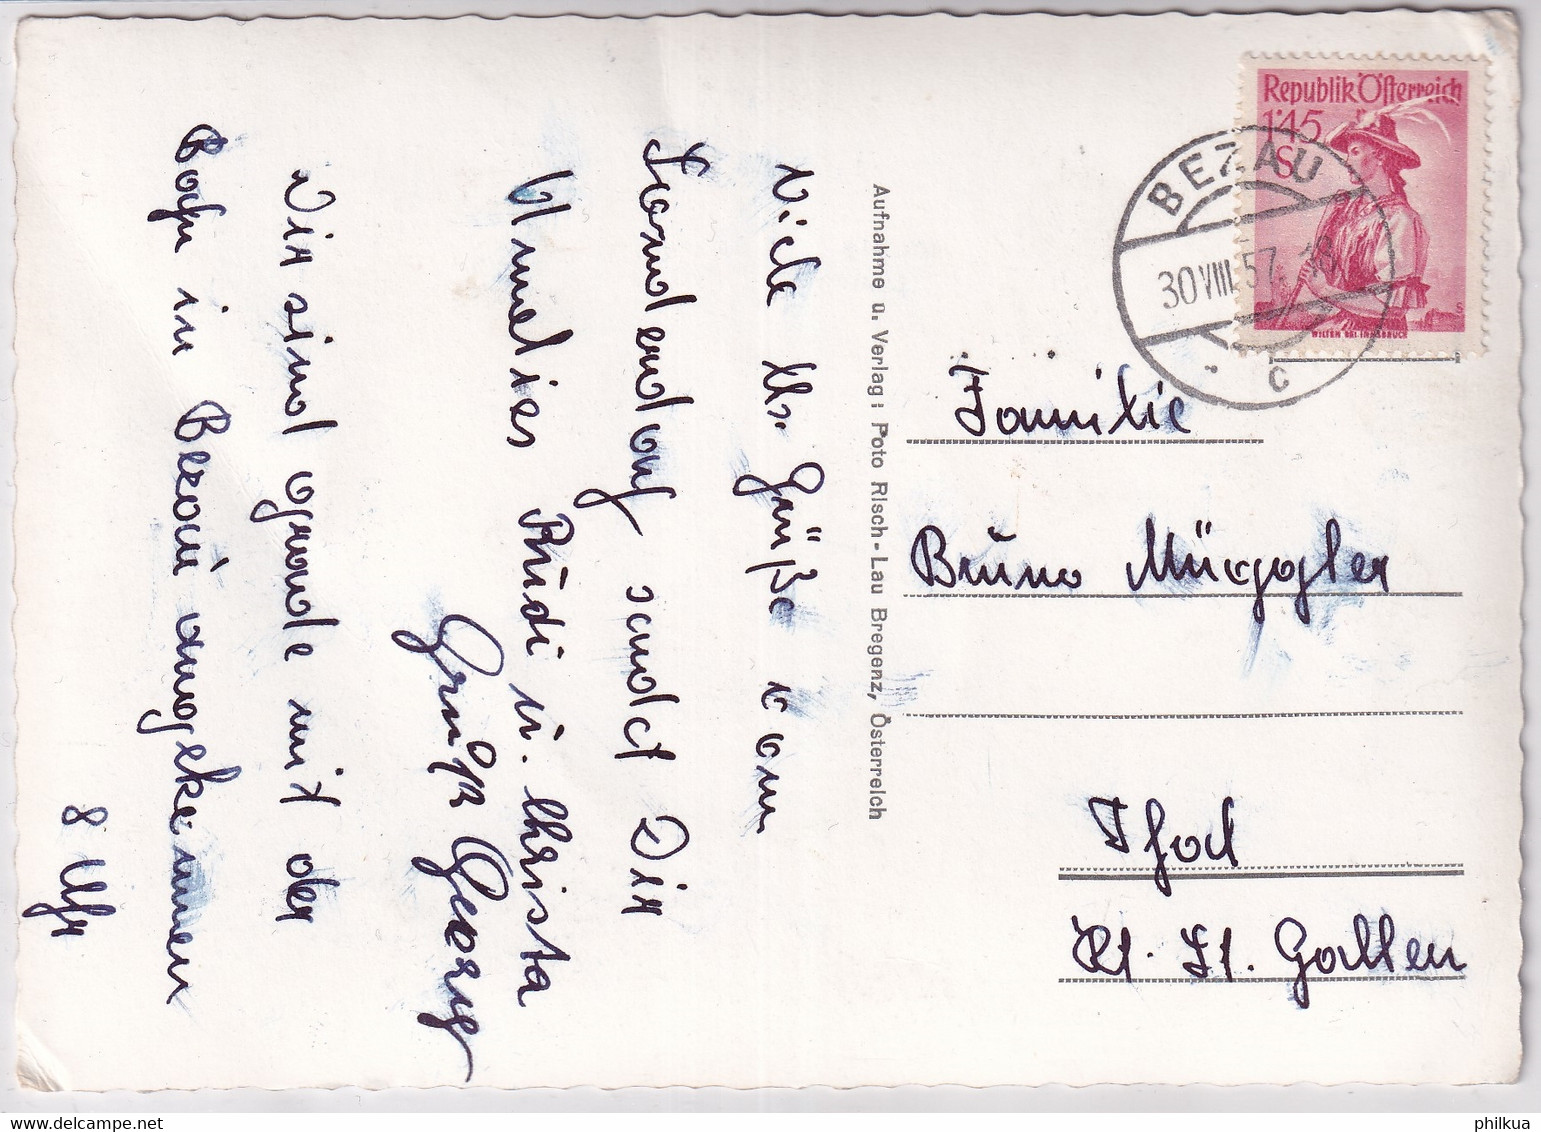 Viele lb. Grüße vom
Sonderdorf sendet Dir
Annelies Rüdi u. Christa
Gruß Georg
Wir sind grade mit der
Bahn in Bezau angekommen
8 Uhr
Aufnahme u. Verlag: Foto Risch-Lau Bregenz, Österreich
Republik Österreich
1'45
S
WILTEN BEI INNSBRUCK
BEZAU
30 VIII. 57
c
Familie
Bruno Müggler
Thal
Kt. St. Gallen
philkua